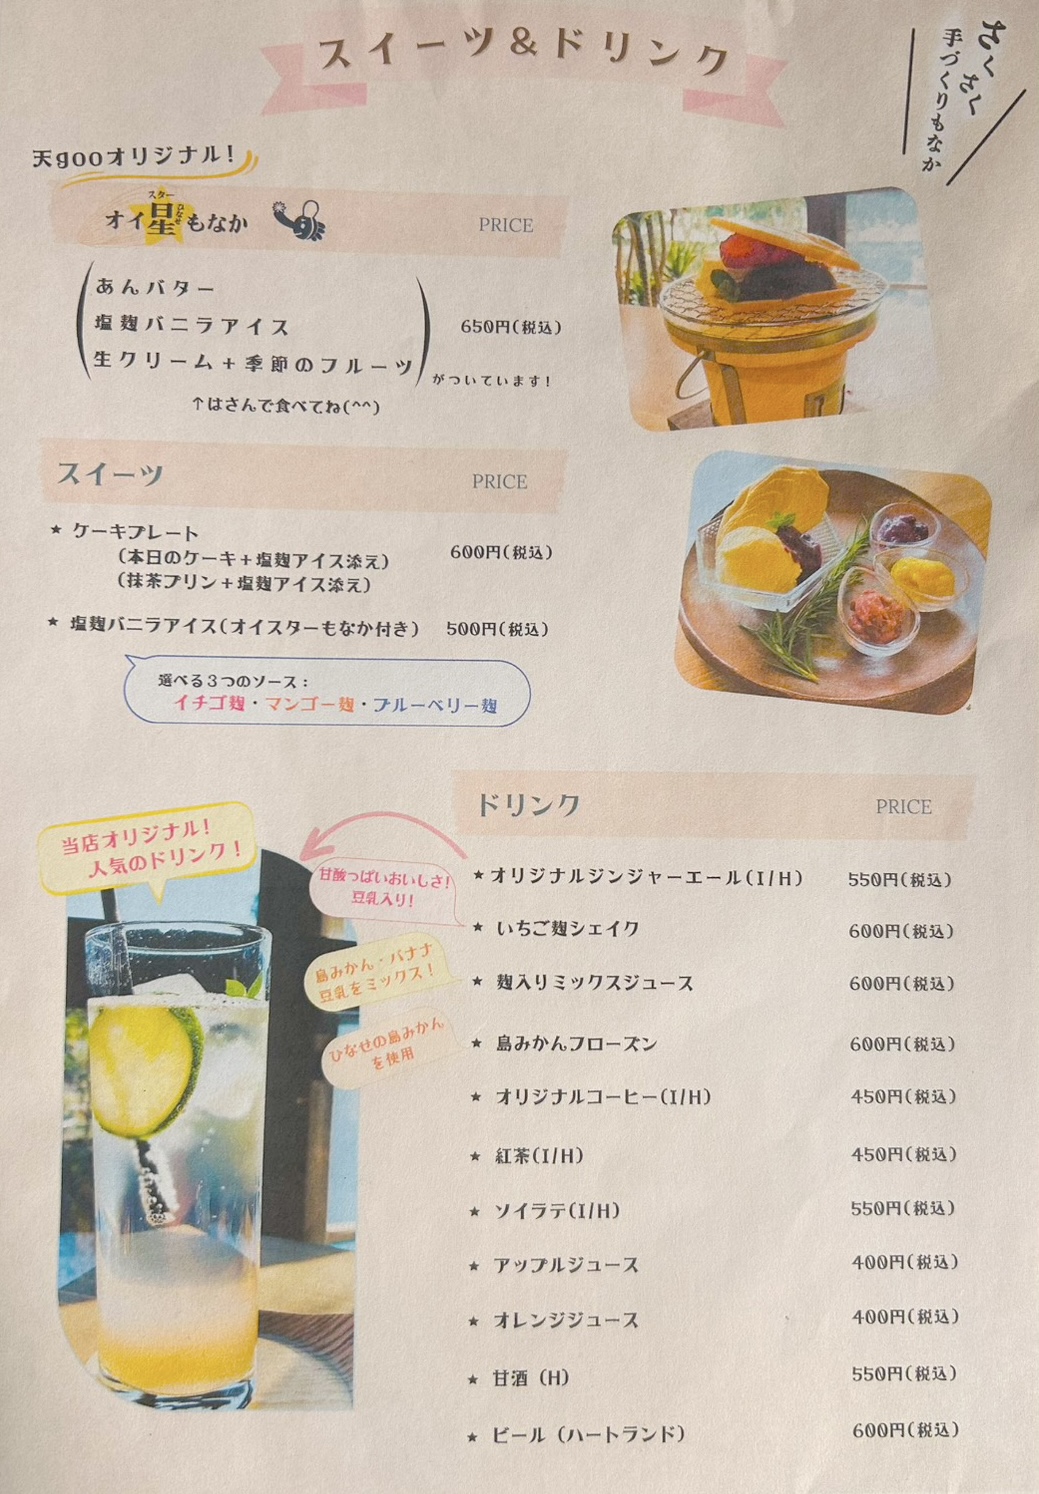 スイーツ&ドリンク
さくさく
手づくりもなか
天gooオリジナル！
オイ星もなか
スター
ひなせ
PRICE
あんバター
塩麹バニラアイス
650円(税込)
生クリーム＋季節のフルーツ
がついています！
↑はさんで食べてね(^^)
スイーツ
PRICE
★ ケーキプレート
(本日のケーキ＋塩麹アイス添え)
600円(税込)
(抹茶プリン＋塩麹アイス添え)
★ 塩麹バニラアイス(オイスターもなか付き) 500円(税込)
選べる３つのソース：
イチゴ麹・マンゴー麹・ブルーベリー麹
ドリンク
PRICE
当店オリジナル！
人気のドリンク！
★ オリジナルジンジャーエール(I/H) 550円(税込)
甘酸っぱいおいしさ!
豆乳入り!
★ いちご麹シェイク 600円(税込)
島みかん・バナナ
豆乳をミックス！
★ 麹入りミックスジュース 600円(税込)
ひなせの島みかん
を使用
★ 島みかんフローズン 600円(税込)
★ オリジナルコーヒー(I/H) 450円(税込)
★ 紅茶(I/H) 450円(税込)
★ ソイラテ(I/H) 550円(税込)
★ アップルジュース 400円(税込)
★ オレンジジュース 400円(税込)
★ 甘酒（H） 550円(税込)
★ ビール（ハートランド） 600円(税込)